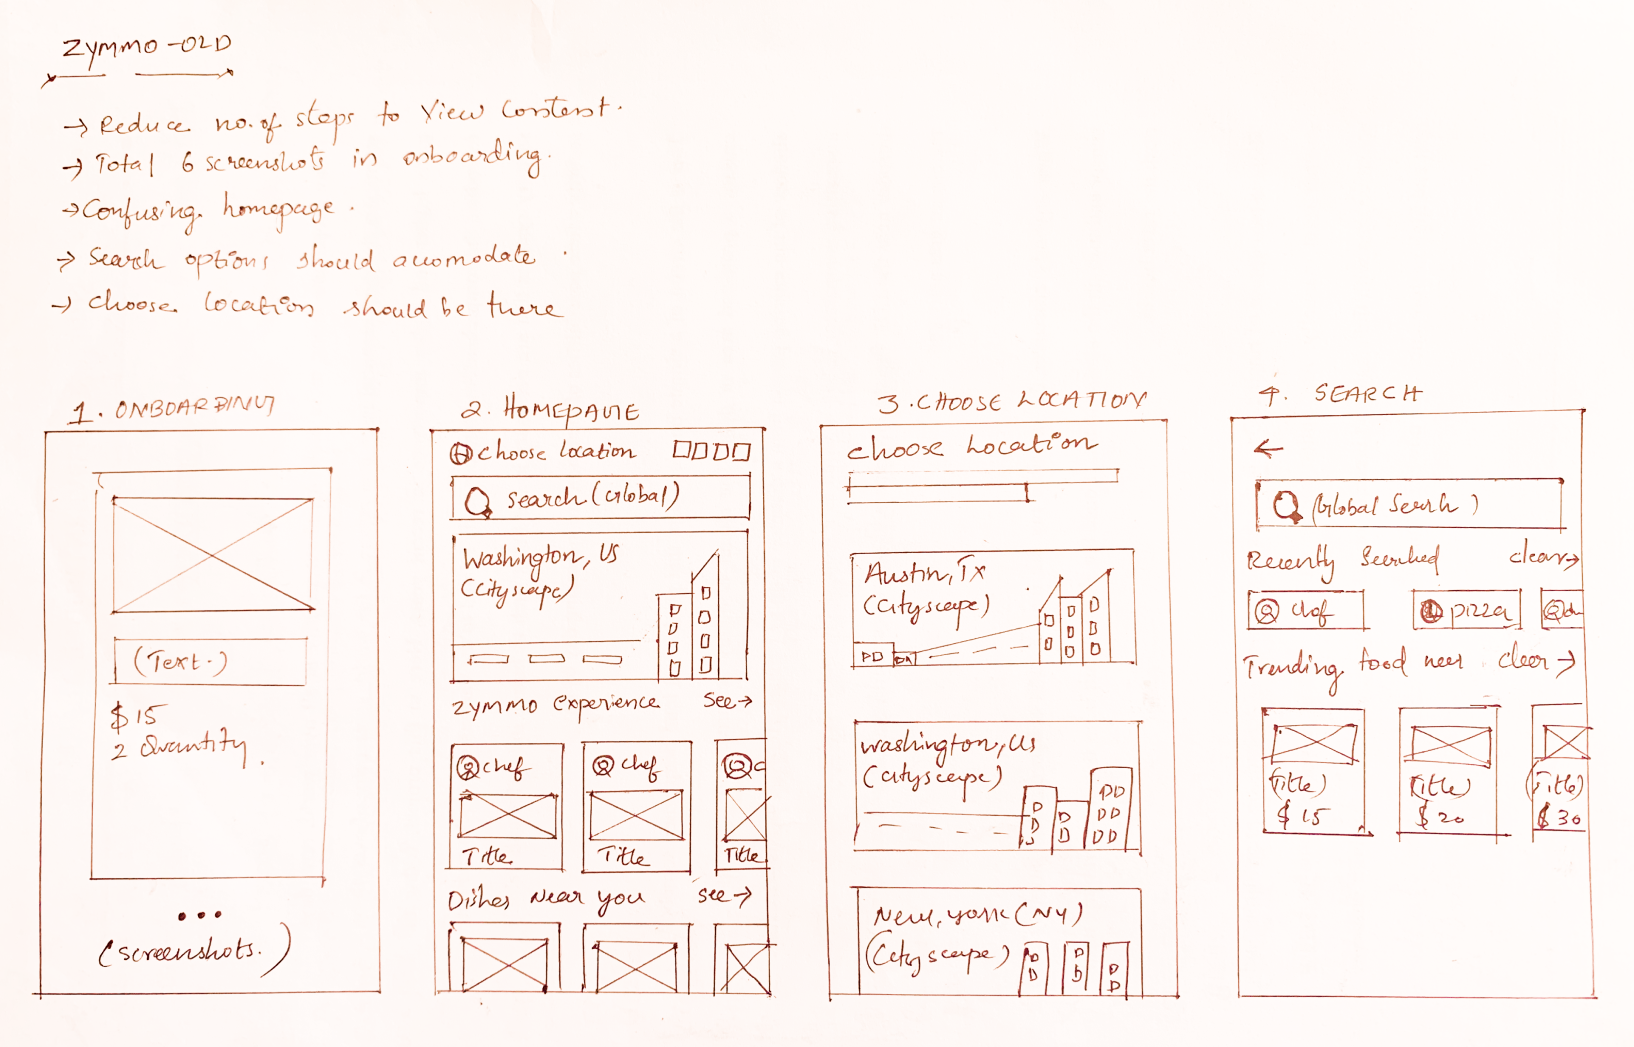 ZYMMO -OLD
→ Reduce no. of steps to View Content.
→ Total 6 screenshots in onboarding.
→ Confusing homepage.
→ Search options should accomodate.
→ choose location should be there
1. ONBOARDING
(Text.)
$ 15
2 Quantity.
(screenshots.)
2. HOMEPAGE
choose location
search (Global)
Washington, US
(cityscape)
ZYMMO Experience See →
chef chef c
Title Title Title
Dishes Near you See →
3. CHOOSE LOCATION
choose Location
Austin, Tx
(cityscape)
washington, US
(cityscape)
New, york (NY)
(cityscape)
4. SEARCH
←
(Global Serch)
Recently Serched clear →
chef pizza
Trending food near. clear →
(Title) (Title) (Title)
$ 15 $ 20 $ 30